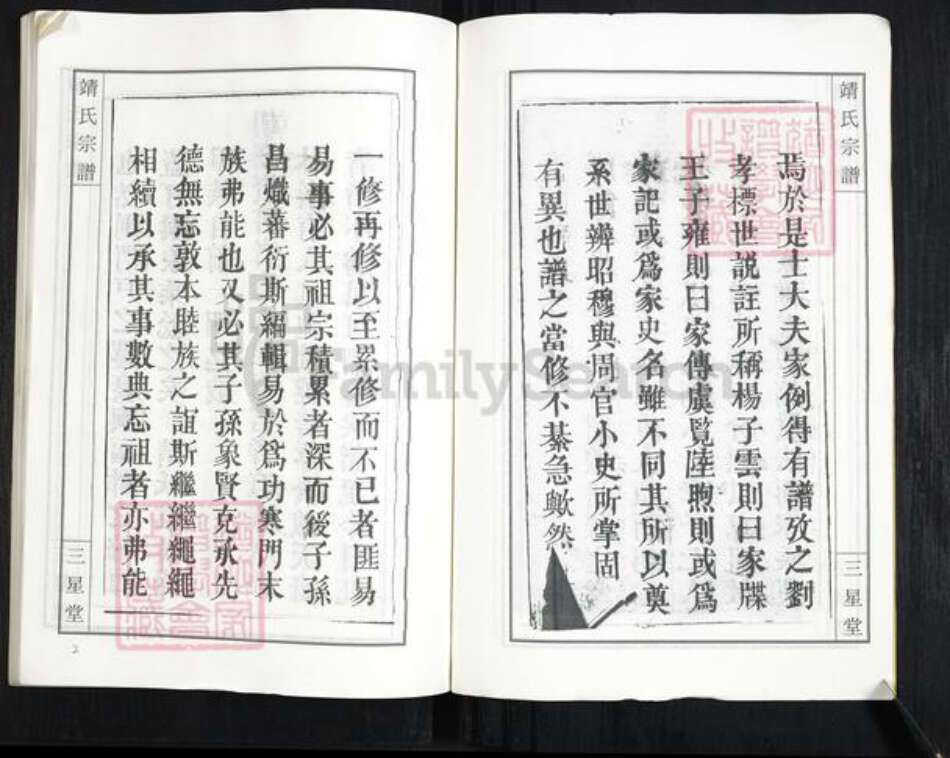 靖氏宗譜
焉於是士大夫家例得有譜攷之劉
孝標世説註所稱楊子雲則曰家牒
王子雍則曰家傳虞覽陸煦則或爲
家記或爲家史名雖不同其所以奠
系世辨昭穆與周官小史所掌固
有異也譜之當修不綦急歟然
三星堂
一修再修以至累修而不已者匪易
易事必其祖宗積累者深而後子孫
昌熾蕃衍斯編輯易於爲功寒門末
族弗能也又必其子孫象賢克承先
德無忘敦本睦族之誼斯繼繼繩繩
相續以承其事數典忘祖者亦弗能
靖氏宗譜
三星堂
2
FamilySearch